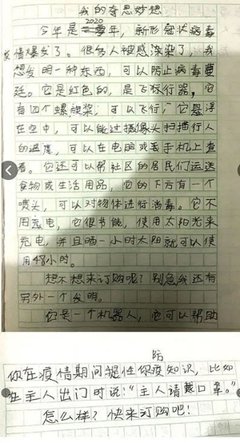 我的奇思妙想
2020
今年是二零年，新形冠状病毒
疫情爆发了。很多人被感染了，我
想发明一种东西，可以防止病毒蔓
延。它是红色的，是飞行器，它
有四个螺旋桨，可以飞行，它悬浮
在空中，可以能过摄像头扫描行人
的温度，可以在电脑或手机上查
看。它还可以帮社区的居民们运送
食物或生活用品，它的下方有一个
喷头，可以对物体进行消毒。它不
用充电，它很节能，使用太阳光来
充电，并且晒一小时太阳就可以使
用48小时。
想不想来订购呢？别急我还有
另外一个发明。
它是一个机器人，它可以帮助
你在疫情期间记住防疫知识，比如
在主人出门时说：“主人请戴口罩。”
怎么样？快来订购吧！